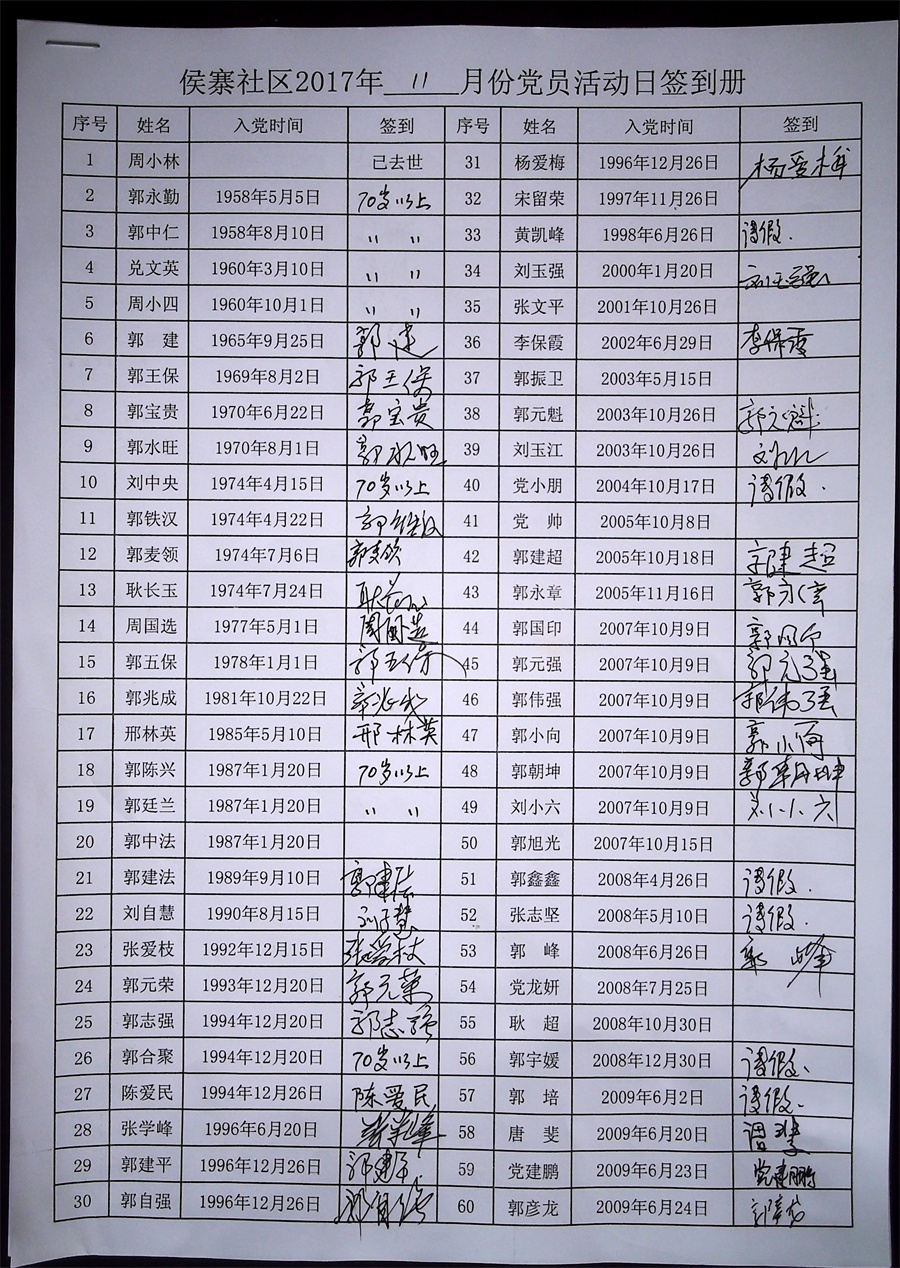 侯寨社区2017年 11 月份党员活动日签到册
序号 姓名 入党时间 签到 序号 姓名 入党时间 签到
1 周小林 已去世 31 杨爱梅 1996年12月26日 杨爱梅
2 郭永勤 1958年5月5日 70岁以上 32 宋留荣 1997年11月26日
3 郭中仁 1958年8月10日 〃 〃 33 黄凯峰 1998年6月26日 请假.
4 兑文英 1960年3月10日 〃 〃 34 刘玉强 2000年1月20日 刘玉强
5 周小四 1960年10月1日 〃 〃 35 张文平 2001年10月26日
6 郭 建 1965年9月25日 郭建 36 李保霞 2002年6月29日 李保霞
7 郭王保 1969年8月2日 郭王保 37 郭振卫 2003年5月15日
8 郭宝贵 1970年6月22日 郭宝贵 38 郭元魁 2003年10月26日 郭元魁
9 郭水旺 1970年8月1日 郭水旺 39 刘玉江 2003年10月26日
10 刘中央 1974年4月15日 70岁以上 40 党小朋 2004年10月17日 请假.
11 郭铁汉 1974年4月22日 郭铁汉 41 党 帅 2005年10月8日
12 郭麦领 1974年7月6日 郭麦领 42 郭建超 2005年10月18日 郭建超
13 耿长玉 1974年7月24日 耿长玉 43 郭永章 2005年11月16日 郭永章
14 周国选 1977年5月1日 周国选 44 郭国印 2007年10月9日 郭国印
15 郭五保 1978年1月1日 郭五保 45 郭元强 2007年10月9日 郭元强
16 郭兆成 1981年10月22日 郭兆成 46 郭伟强 2007年10月9日 郭伟强
17 邢林英 1985年5月10日 邢林英 47 郭小向 2007年10月9日 郭小向
18 郭陈兴 1987年1月20日 70岁以上 48 郭朝坤 2007年10月9日 郭朝坤
19 郭廷兰 1987年1月20日 〃 〃 49 刘小六 2007年10月9日 刘小六
20 郭中法 1987年1月20日 50 郭旭光 2007年10月15日
21 郭建法 1989年9月10日 郭建法 51 郭鑫鑫 2008年4月26日 请假.
22 刘自慧 1990年8月15日 刘自慧 52 张志坚 2008年5月10日 请假.
23 张爱枝 1992年12月15日 张爱枝 53 郭 峰 2008年6月26日 郭峰
24 郭元荣 1993年12月20日 郭元荣 54 党龙妍 2008年7月25日
25 郭志强 1994年12月20日 郭志强 55 耿 超 2008年10月30日
26 郭合聚 1994年12月20日 70岁以上 56 郭宇媛 2008年12月30日 请假.
27 陈爱民 1994年12月26日 陈爱民 57 郭 培 2009年6月2日 请假.
28 张学峰 1996年6月20日 张学峰 58 唐 斐 2009年6月20日 唐斐
29 郭建平 1996年12月26日 郭建平 59 党建鹏 2009年6月23日 党建鹏
30 郭自强 1996年12月26日 郭自强 60 郭彦龙 2009年6月24日 郭彦龙